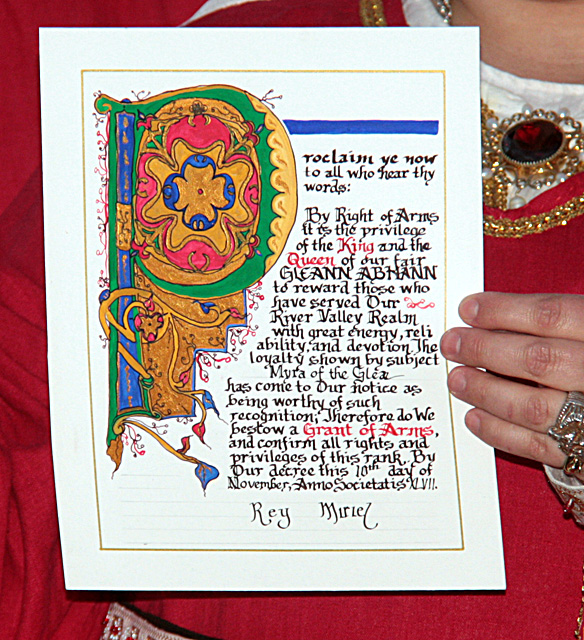 Proclaim ye now
to all who hear thy
words:
By Right of Arms
it is the privilege
of the King and the
Queen of our fair
GLEANN ABHANN
to reward those who
have served Our
River Valley Realm
with great energy, reli
ability, and devotion. The
loyalty shown by subject
Myra of the Glea
has come to Our notice as
being worthy of such
recognition; Therefore do We
bestow a Grant of Arms,
and confirm all rights and
privileges of this rank. By
Our decree this 10th day of
November, Anno Societatis XLVII.
Rey Miriel